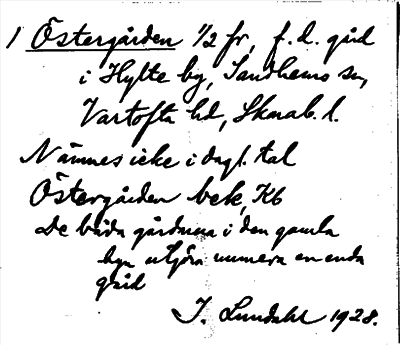 1 Östergården 1/2 fr, f.d. gård
i Hylte by, Sandhems sn,
Vartofta hd, Skarab. l.
Nämnes icke i dagl. tal
Östergården bek, Kb
De båda gårdarna i den gamla
byn utgöra numera en enda
gård
J. Lundahl 1928.